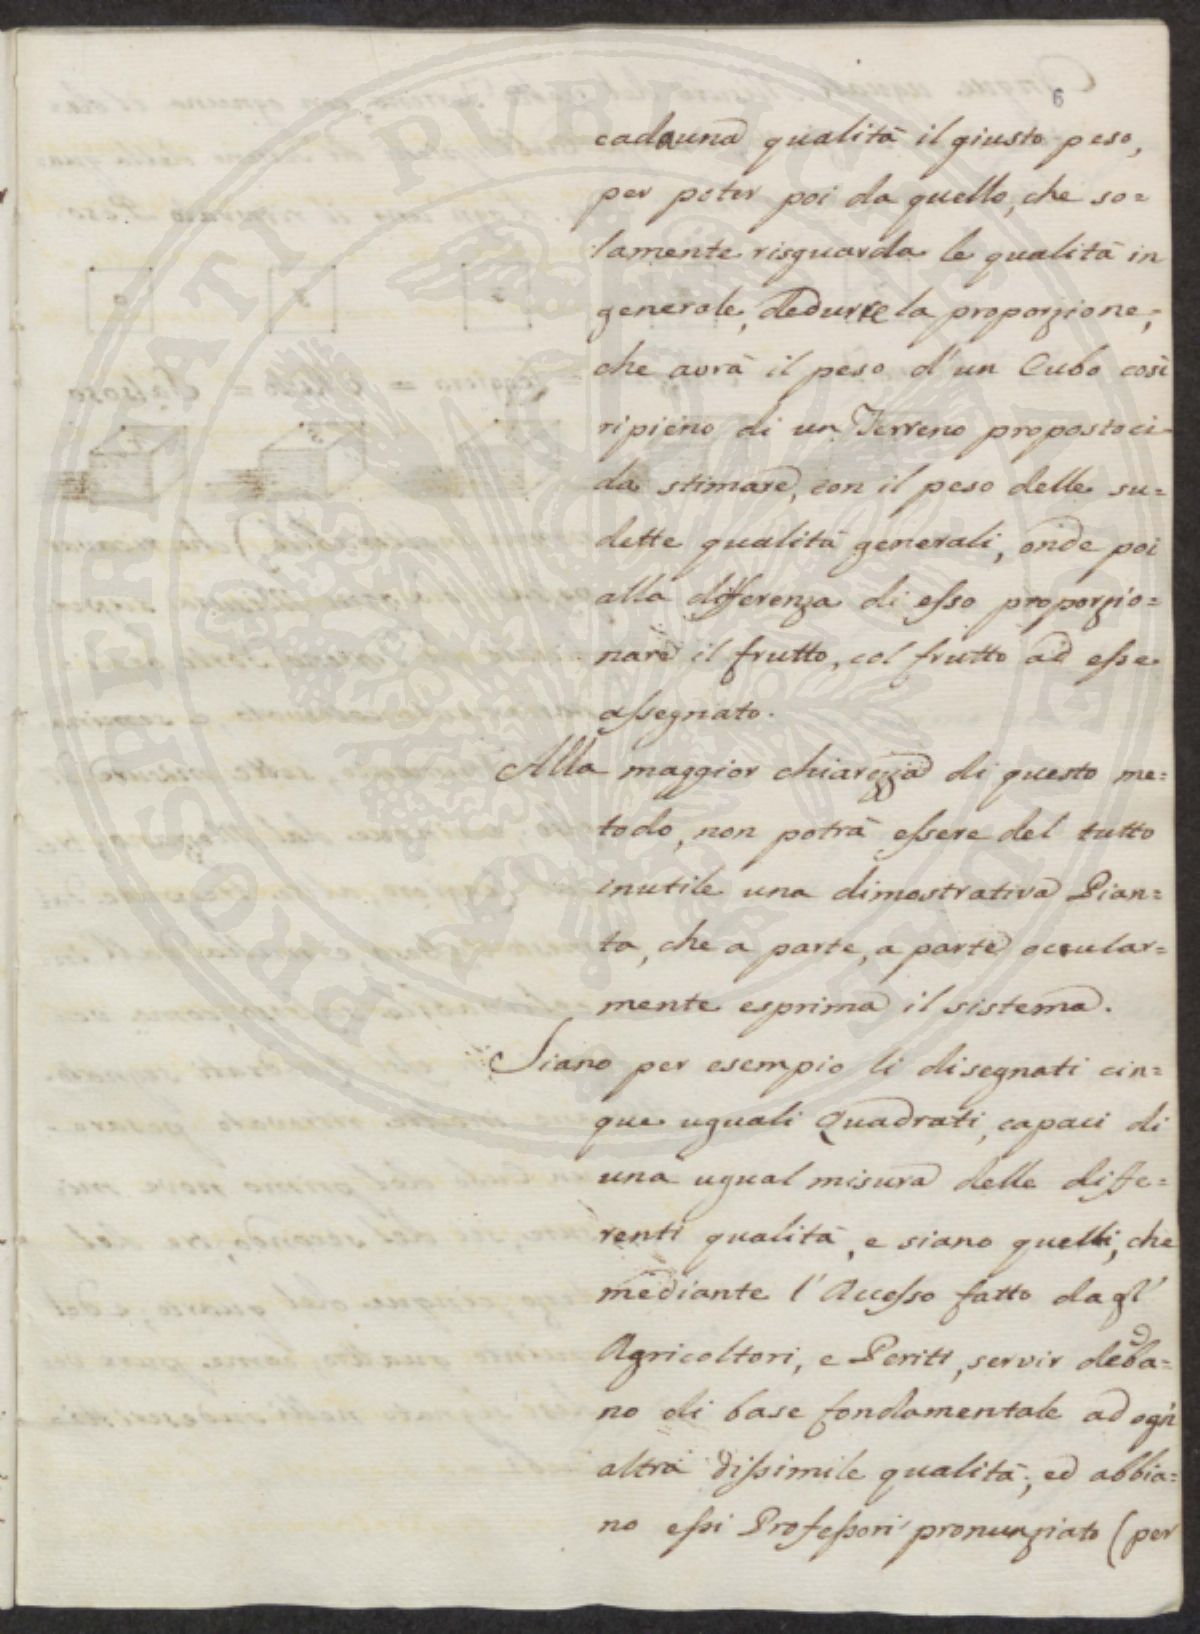 6
cadauna qualità il giusto peso,
per poter poi da quello, che so=
lamente risguarda le qualità in
generale, dedurre la proporzione,
che avrà il peso d'un Cubo così
ripieno di un Terreno propostoci
da stimare, con il peso delle su=
dette qualità generali, onde poi
alla differenza di esso proporzio=
nare il frutto, col frutto ad esse
assegnato.
Alla maggior chiarezza di questo me=
todo, non potrà essere del tutto
inutile una dimostrativa Pian=
ta, che a parte, a parte occular=
mente esprima il sistema.
Siano per esempio li disegnati cin=
que uguali Quadrati, capaci di
una ugual misura delle diffe=
renti qualità, e siano quelli, che
mediante l'Accesso fatto dagl'
Agricoltori, e Periti, servir debba=
no di base fondamentale ad ogn'
altra dissimile qualità; ed abbia=
no essi Professori pronunziato (per
PROSPERITATI PVBLICAE AVGENDAE